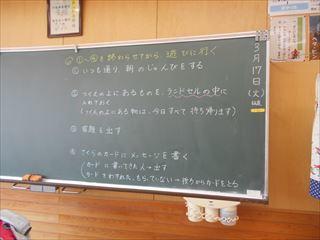 ◎ ①〜④を終わらせてから 遊びに行く
① いつも通り、朝のじゅんびをする
② つくえの上にあるものを、ランドセルの中に
入れておく
(つくえの上にある物は、今日すべて持ち帰ります)
③ 宿題を出す
④ さくらのカードにメッセージを書く
(カードに書いてきた人→出す
カードをわすれた、もらっていない→後ろからカードをとる
3月17日(火)